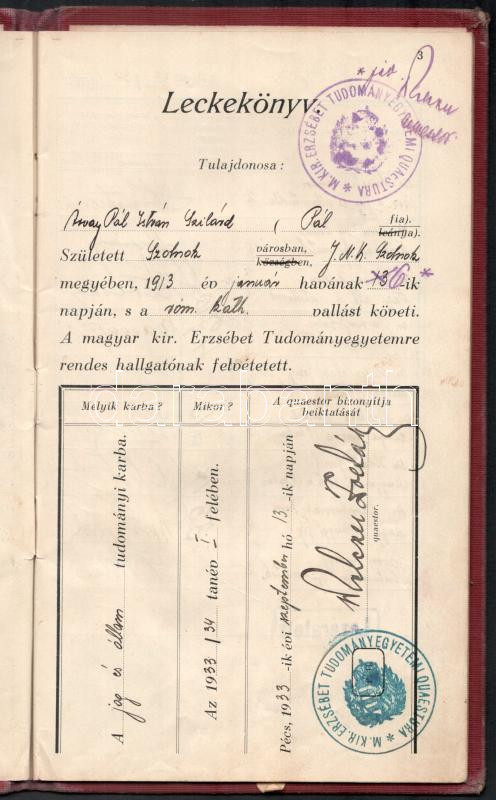 3
* jav.
Leckekönyv.
M. KIR. ERZSÉBET TUDOMÁNYEGYETEMI QUAESTURA *
Tulajdonosa :
Pál István Szilárd ( Pál fia). leánya).
Született Szolnok városban, községben, J. N. K. Szolnok
megyében, 1913 év január havának 13 *6* ik
napján, s a róm. kath. vallást követi.
A magyar kir. Erzsébet Tudományegyetemre
rendes hallgatónak felvétetett.
darabanth
Melyik karba ?
Mikor ?
A quaestor bizonyítja
beiktatását
A jog és állam tudományi karba.
Az 1933/34 tanév I felében.
Pécs, 1933-ik évi szeptember hó 13.-ik napján
quaestor.
M. KIR. ERZSÉBET TUDOMÁNYEGYETEMI QUAESTURA *